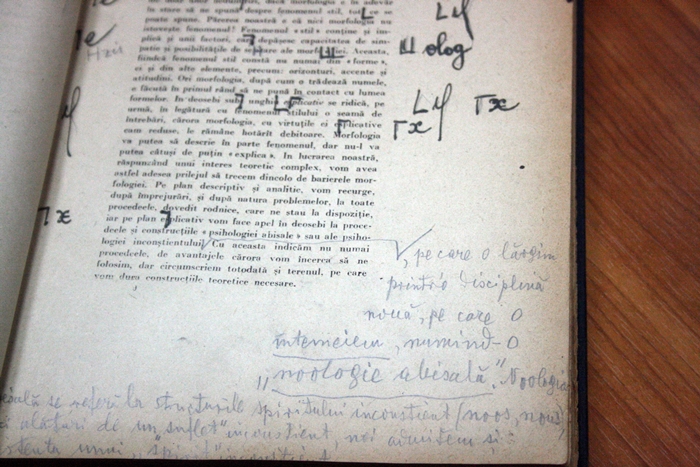 în stare să ne spună despre fenomenul stil, tot ce se
poate spune. Părerea noastră e că nici morfologia nu
istovește fenomenul? Fenomenul «stil» conține și im-
plică și unii factori, depășesc capacitatea de sim-
patie și posibilitățile de ale morfologiei. Aceasta,
fiindcă fenomenul stil constă nu numai din «forme»,
ci și din alte elemente, precum: orizonturi, accente și
atitudini. Ori morfologia, după cum o trădează numele,
e făcută în primul rând să ne pună în contact cu lumea
formelor. În deosebi sub unghi explicativ se ridică, pe
urmă, în legătură cu fenomenul stilului o seamă de
întrebări, cărora morfologia, cu virtuțile ei explicative
cam reduse, le rămâne hotărît debitoare. Morfologia
va putea să descrie în parte fenomenul, dar nu-l va
putea câtuși de puțin «explica». În lucrarea noastră,
răspunzând unui interes teoretic complex, vom avea
astfel adesea prilejul să trecem dincolo de barierele mor-
fologiei. Pe plan descriptiv și analitic, vom recurge,
după împrejurări, și după natura problemelor, la toate
procedeele, dovedit rodnice, care ne stau la dispoziție,
iar pe plan explicativ vom face apel în deosebi la proce-
deele și construcțiile «psihologiei abisale» sau ale psiho-
logiei inconștientului. Cu aceasta indicăm nu numai
procedeele, de avantajele cărora vom încerca să ne
folosim, dar circumscriem totodată și terenul, pe care
vom dura construcțiile teoretice necesare.
olog
Γx
Γx
Γx
, pe care o lărgim
printr'o disciplină
nouă, pe care o
întemeiem, numind-o
„noologie abisală." Noologia
abisală se referă la structurile spiritului inconștient (noos, nous)
alături de un „suflet" inconștient, noi admitem și
unui „spirit" inconștient